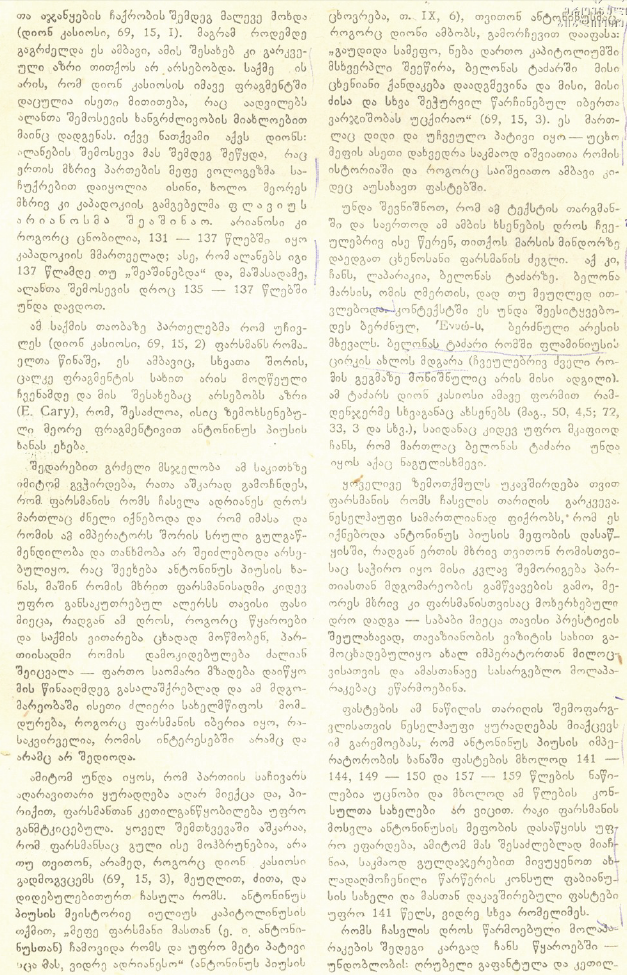 თა აჯანყების ჩაქრობის შემდეგ მალევე მოხდა
(დიონ კასიოსი, 69, 15, I). მაგრამ როდემდე
გაგრძელდა ეს ამბავი, ამის შესახებ კი გარკვე-
ული აზრი თითქოს არ არსებობდა. საქმე ის
არის, რომ დიონ კასიოსის იმავე ფრაგმენტში
დაცულია ისეთი მითითება, რაც აადვილებს
ალანთა შემოსევის ხანგრძლივობის მიახლოებით
მაინც დადგენას. იქვე ნათქვამი აქვს დიონს:
ალანების შემოსევა მას შემდეგ შეწყდა, რაც
ერთის მხრივ პართების მეფე ვოლოგეზმა სა-
ჩუქრებით დაიყოლია ისინი, ხოლო მეორეს
მხრივ კი კაპადოკიის გამგებელმა ფლავიუს
არიანოსმა შეაშინაო. არიანოსი კი
როგორც ცნობილია, 131 — 137 წლებში იყო
კაპადოკიის მმართველად; ასე, რომ ალანებს იგი
137 წლამდე თუ „შეაშინებდა“ და, მაშასადამე,
ალანთა შემოსევის დროც 135 — 137 წლებში
უნდა დავდოთ.
ამ საქმის თაობაზე პართელებმა რომ უჩივ-
ლეს (დიონ კასიოსი, 69, 15, 2) ფარსმანს რომა-
ელთა წინაშე, ეს ამბავიც, სხვათა შორის,
ცალკე ფრაგმენტის სახით არის მოღწეული
ჩვენამდე და მის შესახებაც არსებობს აზრი
(E. Cary), რომ, შესაძლოა, ისიც ზემოხსენებუ-
ლი მეორე ფრაგმენტივით ანტონინუს პიუსის
ხანას ეხება.
შედარებით გრძელი მსჯელობა ამ საკითხზე
იმიტომ გვჭირდება, რათა აშკარად გამოჩნდეს,
რომ ფარსმანის რომს ჩასვლა ადრიანეს დროს
მართლაც ძნელი იქნებოდა და რომ იმასა და
რომის ამ იმპერატორს შორის სრული გულგაწ-
მენდილობა და თანხმობა არ შეიძლებოდა არსე-
ბულიყო. რაც შეეხება ანტონინუს პიუსის ხა-
ნას, მაშინ რომის მხრით ფარსმანისადმი კიდევ
უფრო განსაკუთრებულ ალერსს თავისი ფასი
მიეცა, რადგან ამ დროს, როგორც წყაროები
და საქმის ვითარება ცხადად მოწმობენ, პარ-
თიისადმი რომის დამოკიდებულება ძალიან
შეიცვალა — ფართო საომარი მზადება დაიწყო
მის წინააღმდეგ გასალაშქრებლად და ამ მდგო-
მარეობაში ისეთი ძლიერი სახელმწიფოს მომ-
დურება, როგორც ფარსმანის იბერია იყო, რა-
საკვირველია, რომის ინტერესებში არამც და
არამც არ შედიოდა.
ამიტომ უნდა იყოს, რომ პართიის საჩივარს
აღარავითარი ყურადღება აღარ მიექცა და, პი-
რიქით, ფარსმანთან კეთილგანწყობილება უფრო
განმტკიცებულა. ყოველ შემთხვევაში აშკარაა,
რომ ფარსმანსაც გული ისე მოჰბრუნებია, არა
თუ თვითონ, არამედ, როგორც დიონ კასიოსი
გადმოგვცემს (69, 15, 3), მეუღლით, ძითა, და
დიდებულებითურთ ჩასულა რომს. ანტონინუს
პიუსის მეისტორიე იულიუს კაპიტოლინუსის
თქმით, „მეფე ფარსმანი მასთან (ე. ი. ანტონი-
ნუსთან) ჩამოვიდა რომს და უფრო მეტი პატივი
სცა მას, ვიდრე ადრიანესო“ (ანტონინუს პიუსის
ცხოვრება, თ. IX, 6), თვითონ ანტონინუსმაც,
როგორც დიონი ამბობს, გამორჩევით დააფასა:
„გაუდიდა სამეფო, ნება დართო კაპიტოლიუმში
მსხვერპლი შეეწირა, ბელონას ტაძარში მისი
ცხენიანი ქანდაკება დაადგმევინა და მისი, მისი
ძისა და სხვა შეჭურვილ წარჩინებულ იბერთა
ვარჯიშობას უცქირაო“ (69, 15, 3). ეს მართ-
ლაც დიდი და უჩვეულო პატივი იყო — უცხო
მეფის ასეთი დახვედრა საკმაოდ იშვიათია რომის
ისტორიაში და როგორც საიშვიათო ამბავი კი-
დეც აუსახავთ ფასტებში.
უნდა შევნიშნოთ, რომ ამ ტექსტის თარგმან-
ში და საერთოდ ამ ამბის ხსენების დროს ჩვე-
ულებრივ ისე წერენ, თითქოს მარსის მინდორზე
დაედგათ ცხენოსანი ფარსმანის ძეგლი. აქ კი,
ჩანს, ლაპარაკია, ბელონას ტაძარზე. ბელონა
მარსის, ომის ღმერთის, დად თუ მეუღლედ ით-
ვლებოდა. კონტექსტში ეს უნდა შეესიტყვებო-
დეს ბერძნულ, Ἐνυώ-ს, ბერძნული არესის
მხევალს. ბელონას ტაძარი რომში ფლამინიუსის
ცირკის ახლოს მდგარა (ჩვეულებრივ ძველი რო-
მის გეგმაზე მონიშნულიც არის მისი ადგილი).
ამ ტაძარს დიონ კასიოსი ამავე ფორმით რამ-
დენჯერმე სხვაგანაც ახსენებს (მაგ., 50, 4,5; 72,
33, 3 და სხვ.), საიდანაც კიდევ უფრო მკაფიოდ
ჩანს, რომ მართლაც ბელონას ტაძარი უნდა
იყოს აქაც ნაგულისხმევი.
ყოველივე ზემოთქმულს უკავშირდება თვით
ფარსმანის რომს ჩასვლის თარიღის გარკვევა.
ნესელჰაუფი სამართლიანად ფიქრობს, რომ ეს
იქნებოდა ანტონინუს პიუსის მეფობის დასაწ-
ყისში, რადგან ერთის მხრივ თვითონ რომისთვი-
საც საჭირო იყო მისი კვლავ შემორიგება პარ-
თიასთან მდგომარეობის გამწვავების გამო, მე-
ორეს მხრივ კი ფარსმანისთვისაც მოხერხებული
დრო დადგა — საბაბი მიეცა თავისი პრესტიჟის
შეულახავად, თავაზიანობის ვიზიტის სახით გა-
მოცხადებულიყო ახალ იმპერატორთან მილოც-
ვისათვის და ამასთანავე სასარგებლო მოლაპა-
რაკებაც ეწარმოებინა.
ფასტების ამ ნაწილის თარიღის შემოფარგ-
ვლისათვის ნესელჰაუფი ყურადღებას მიაქცევს
იმ გარემოებას, რომ ანტონინუს პიუსის იმპე-
რატორობის ხანაში ფასტების მხოლოდ 141 —
144, 149 — 150 და 157 — 159 წლების ნაწი-
ლებია უცნობი და მხოლოდ ამ წლების კონ-
სულთა სახელები არ ვიცით. რაკი ფარსმანის
მოსვლა ანტონინუსის მეფობის დასაწყისს უფ-
რო ეფარდება, ამიტომ მას შესაძლებლად მიაჩ-
ნია, საკმაოდ გულდაჯერებით მივუყენოთ ახ-
ლადაღმოჩენილი წარწერის კონსულ ფაბიანუ-
სის სახელი და მასთან დაკავშირებული ფასტები
უფრო 141 წელს, ვიდრე სხვა რომელიმეს.
რომს ჩასვლის დროს წარმოებულ მოლაპა-
რაკების შედეგი კარგად ჩანს წყაროებში —
უნდობლობის ღრუბელი გაფანტულა და კეთილ-